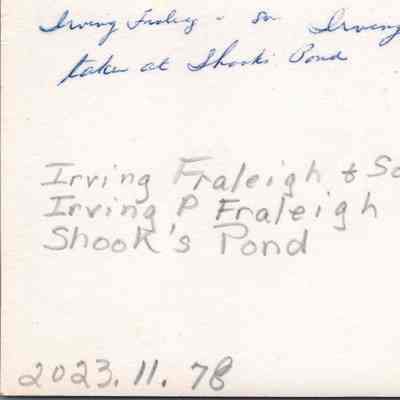 Irving Fraleigh - Son Irving
taken at Shooks Pond
Irving Fraleigh & So
Irving P Fraleigh
Shook's Pond
2023.11.78